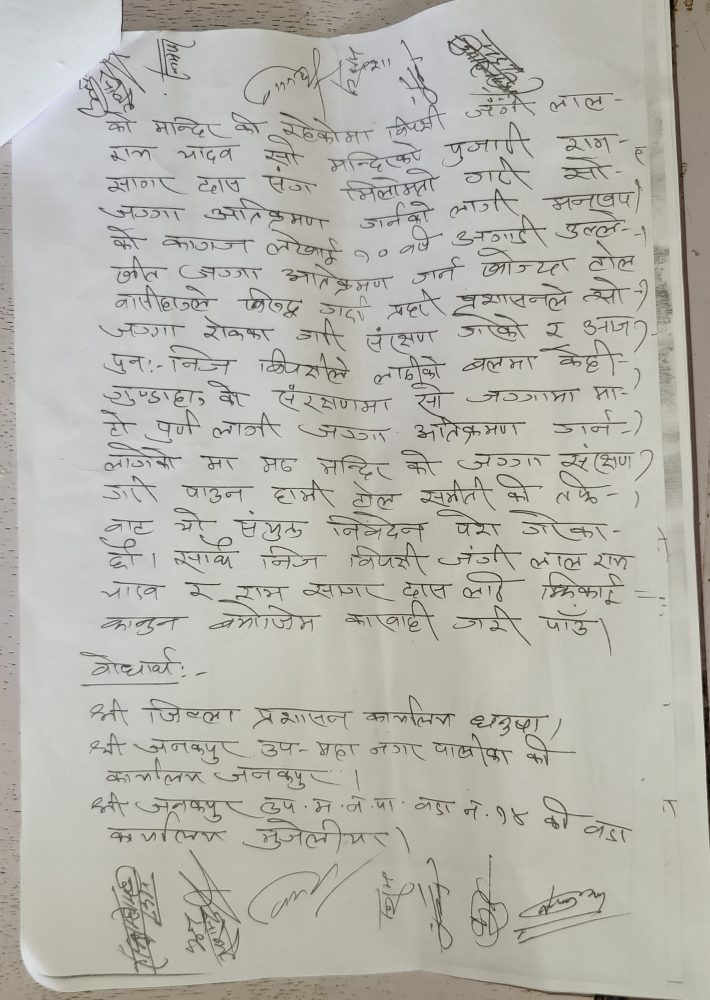 को मन्दिर को रहेकोमा विपक्षी जंगी लाल-
राम यादव सो मन्दिरको पुजारी राम-
सागर दास संग मिलोमतो गरी सो-
जग्गा अतिक्रमण गर्नको लागी मनखुपी
को कागज लेखाई १० वर्ष अगाडी उल्ले-
खीत जग्गा अतिक्रमण गर्न खोज्दा टोल
वासीहरुले विरुद्ध गर्दा प्रहरी प्रशासनले सो-
जग्गा रोक्का गरी संरक्षण गरेको र आज
पुनः- निज विपक्षीले लाठीको बलमा केही-
गुण्डाहरु को संरक्षणमा सो जग्गामा मा-
टो पुर्न लागी जग्गा अतिक्रमण गर्न-
लागेको मा मठ मन्दिर को जग्गा संरक्षण
गरी पाउन हामी टोल समीती को तर्फ-
बाट यो संयुक्त निवेदन पेश गरेका-
छौं। साथै निज विपक्षी जंगी लाल राम
यादव र राम सागर दास लाई झिकाई
कानुन बमोजिम कारवाही गरी पाँउ।
वोधार्थ:-
श्री जिल्ला प्रशासन कार्यालय धनुषा।
श्री जनकपुर उप-महा नगर पालीका को
कार्यालय जनकपुर।
श्री जनकपुर उप.म.न.पा. वडा नं.१४ को वडा
कार्यालय मुजेलीया।